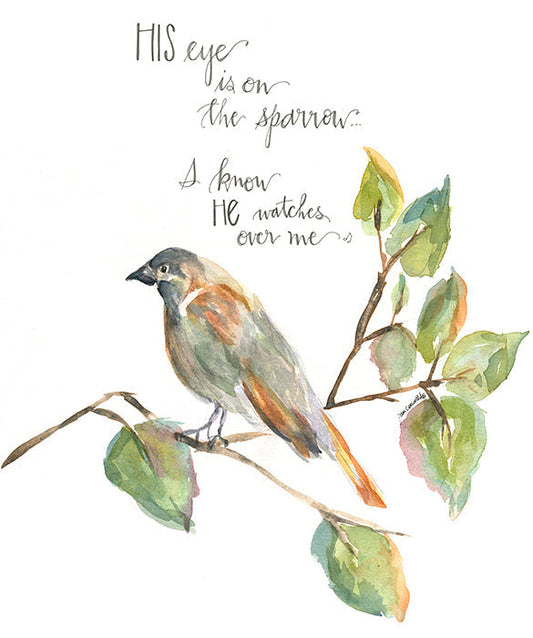 HIS eye
is on
the sparrow...
I know
HE watches
over me